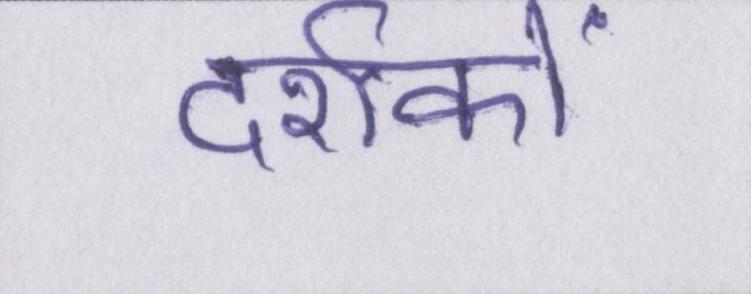 दर्शकों